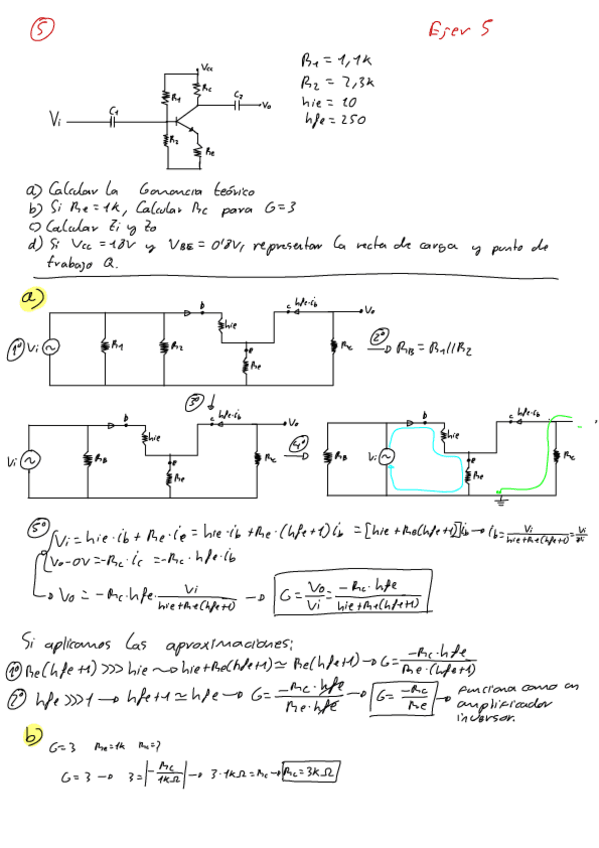 5 Ejer 5
R1 = 1,1k
R2 = 2,3k
hie = 10
hfe = 250
Vcc
R1 Rc C2 Vo
Vi C1
R2 Re
a) Calcular la Ganancia teórico
b) Si Re = 1k, Calcular Rc para G=3
c) Calcular Zi y Zo
d) Si Vcc = 18V y VBE = 0'8V, representar la recta de carga y punto de
trabajo Q.
a)
b hie c hfe·ib Vo
1º Vi R1 R2 e Re Rc 2º RB = R1//R2
3º
b hie c hfe·ib Vo 4º b hie c hfe·ib
Vi RB e Re Rc RB Vi e Re Rc
5º Vi = hie·ib + Re·ie = hie·ib + Re·(hfe+1)ib = [hie+Re(hfe+1)]ib → ib = Vi / hie+Re(hfe+1)
Vo-0V = -Rc·ic = -Rc·hfe·ib
Vo = -Rc·hfe· Vi / hie+Re(hfe+1) → G = Vo / Vi = -Rc·hfe / hie+Re(hfe+1)
Si aplicamos las aproximaciones:
1º Re(hfe+1) >>> hie ~> hie+Re(hfe+1) ≃ Re(hfe+1) → G = -Rc·hfe / Re·(hfe+1)
2º hfe >>> 1 → hfe+1 ≃ hfe → G = -Rc·hfe / Re·hfe → G = -Rc / Re → Funciona como un
amplificador
inversor.
b)
G=3 Re=1k Rc=?
G = 3 → 3 = |-Rc / 1kΩ| → 3·1kΩ = Rc → Rc = 3kΩ